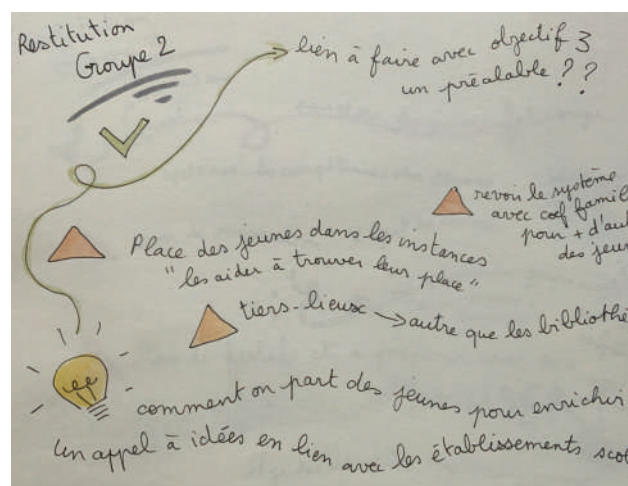 Restitution
Groupe 2
lien à faire avec objectif 3
un préalable ? ?
revoir le système
avec coef famil
pour + d'aut
des jeun
Place des jeunes dans les instances
"les aider à trouver leur place"
tiers-lieux → autre que les bibliothè
comment on part des jeunes pour enrichir
Un appel à idées en lien avec les établissements scol